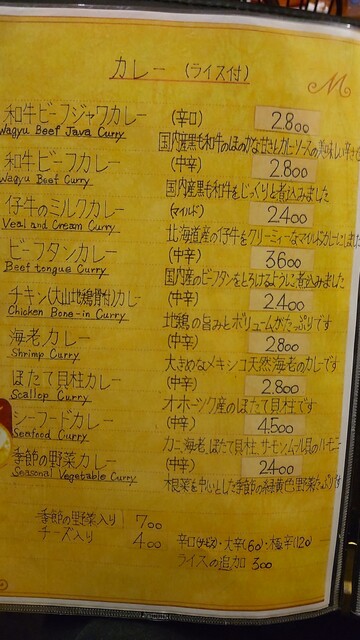 カレー (ライス付)
M
和牛ビーフジャワカレー (辛口) 2.800
Wagyu Beef Java Curry
国内産黒毛和牛のほのかな甘さとカレーソースの美味しい辛さ
和牛ビーフカレー (中辛) 2.800
Wagyu Beef Curry
国内産黒毛和牛をじっくりと煮込みました
仔牛のミルクカレー (マイルド) 2.400
Veal and Cream Curry
北海道産の仔牛をクリーミーなマイルドカレーにしました
ビーフタンカレー (中辛) 3600
Beef tongue Curry
国内産のビーフタンをとろけるように煮込みました
チキン(大山地鶏骨付)カレー (中辛) 2.400
Chicken Bone-in Curry
地鶏の旨みとボリュームがたっぷりです
海老カレー (中辛) 2.800
Shrimp Curry
大きめなメキシコ天然海老のカレーです
ほたて貝柱カレー (中辛) 2.800
Scallop Curry
オホーツク産のほたて貝柱です
シーフードカレー (中辛) 4.500
Seafood Curry
カニ、海老、ほたて貝柱、サーモン、ムール貝のハーモニー
季節の野菜カレー (中辛) 2400
Seasonal Vegetable Curry
根菜を中心とした季節の緑黄色野菜たっぷりです
季節の野菜入り 700
チーズ入り 400
辛口 ・大辛(60)・極辛(120)
ライスの追加 300